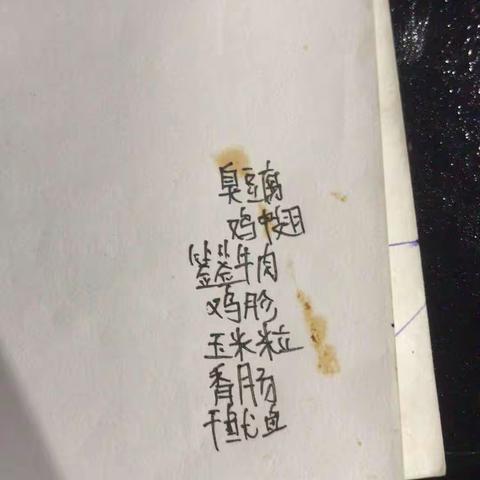 臭豆腐
鸡中翅
签签牛肉
鸡胗
玉米粒
香肠
干鱿鱼